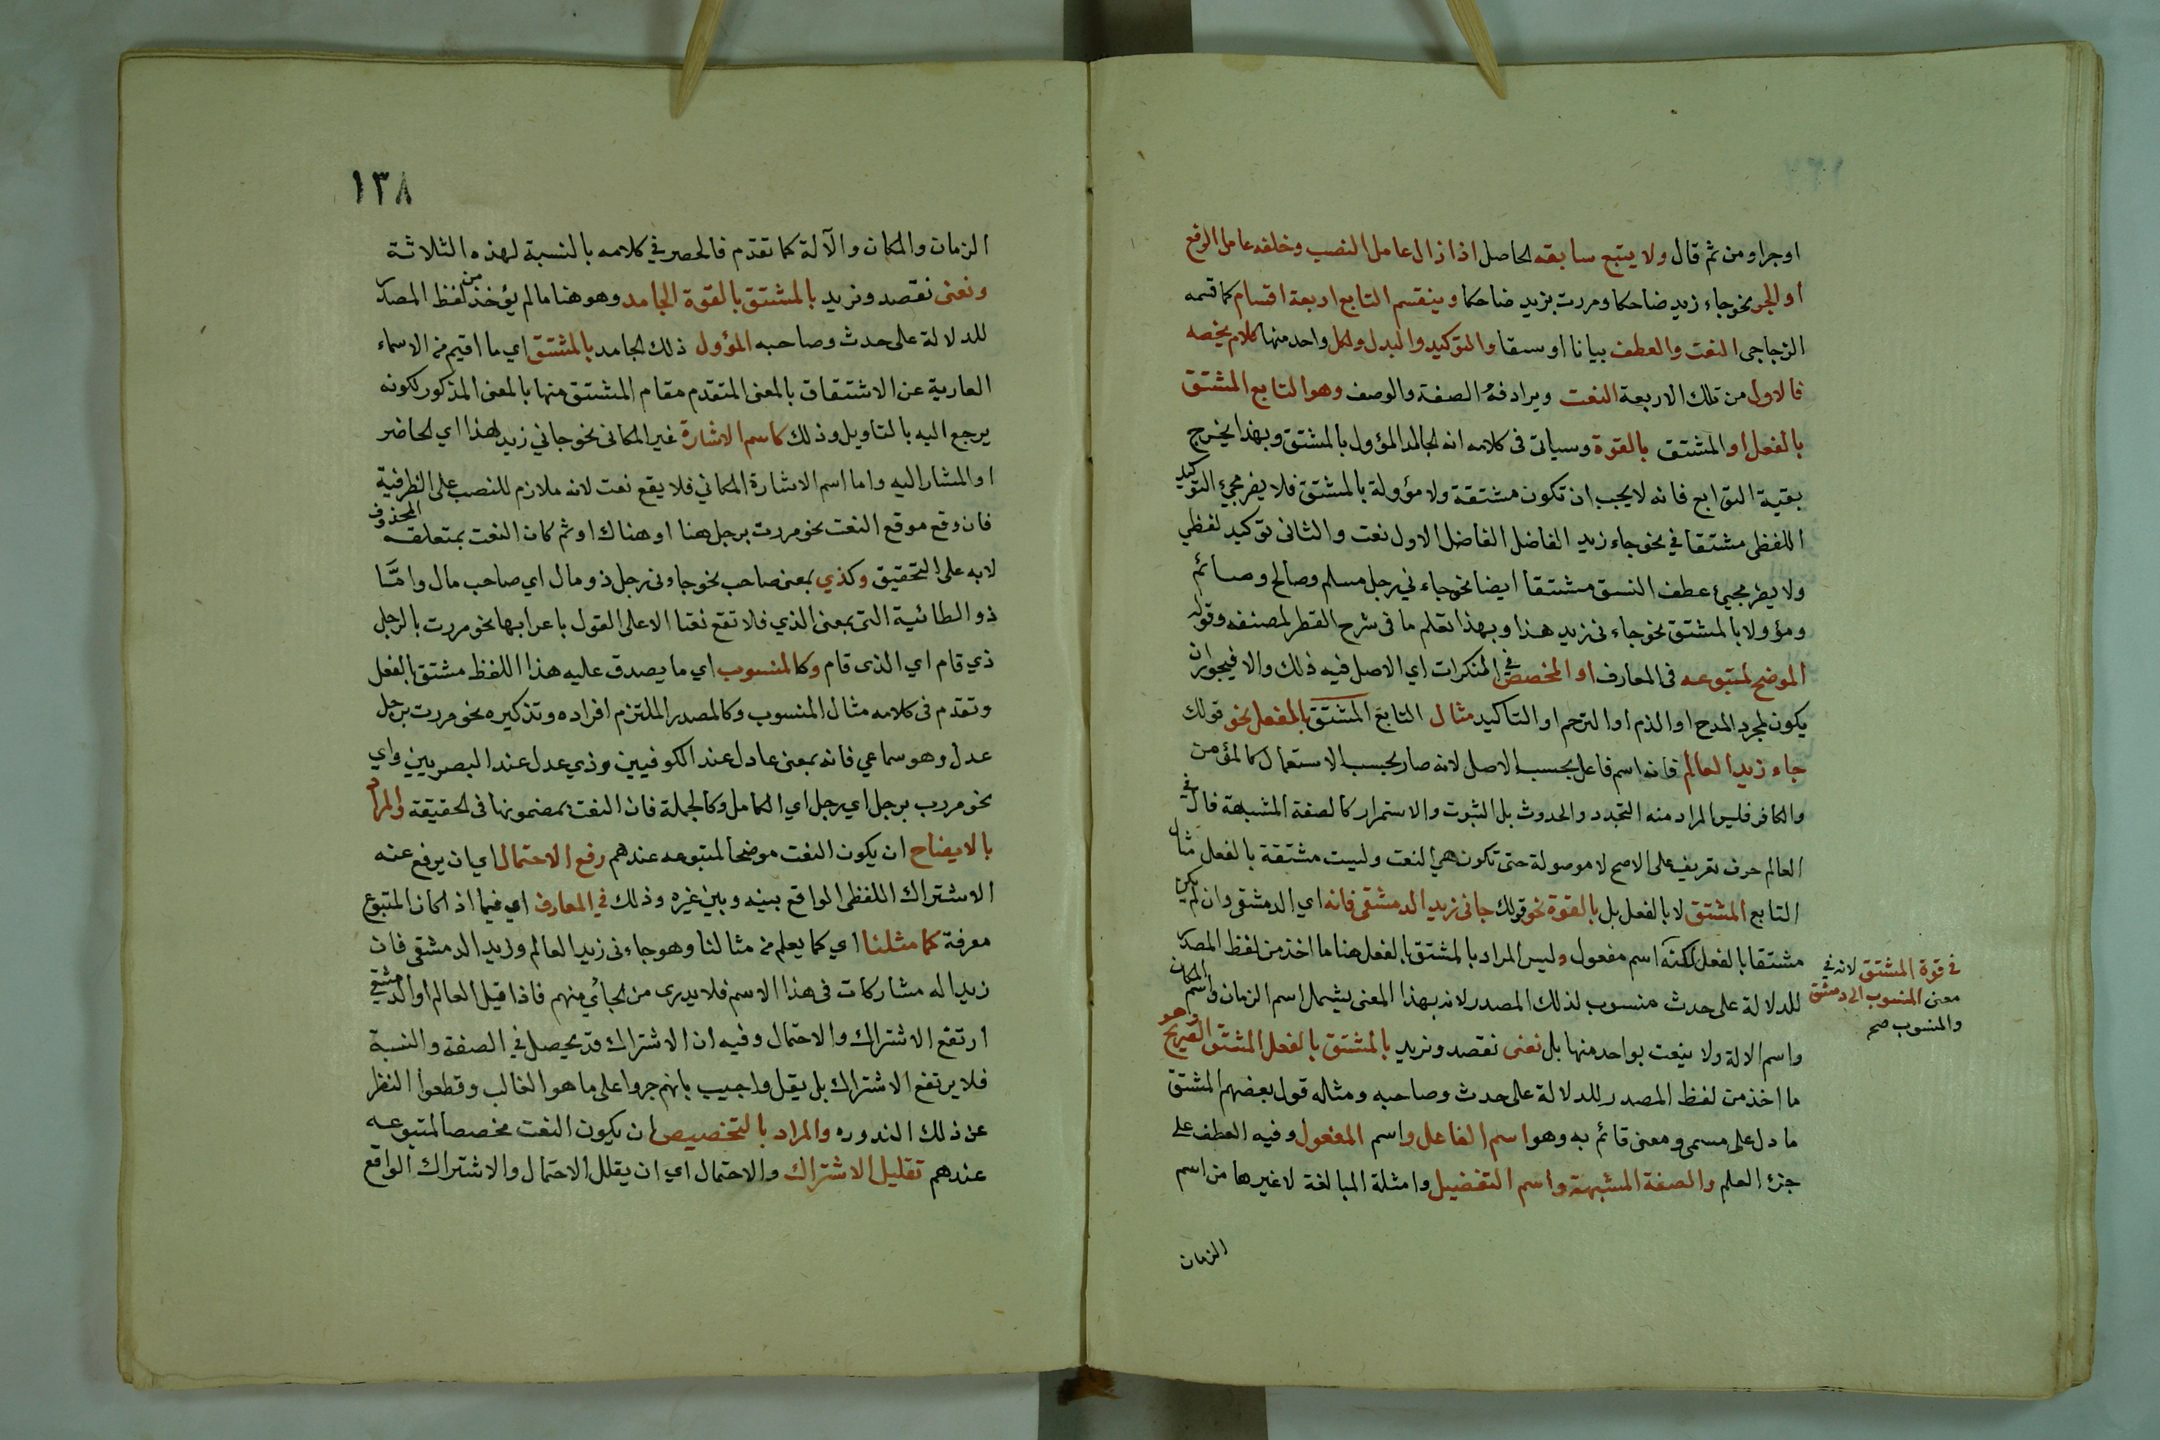 اوجرا ومن ثم قال ولا يتبع سابقه الحاصل اذا زال عامل النصب وخلفه عامل الرفع
او الجر نحو جاء زيد ضاحكا ومررت بزيد ضاحكا وينقسم التابع اربعة اقسام كما قسمه
الزجاجى النعت والعطف بيانا او نسقا والتوكيد والبدل ولكل واحد منها كلام يخصه
فالاول من تلك الاربعة النعت ويرادفه الصفة والوصف وهو التابع المشتق
بالفعل او المشتق بالقوة وسياتى فى كلامه انه الجامد المؤول بالمشتق وبهذا يخرج
بقية التوابع فانه لا يجب ان تكون مشتقة ولا مؤولة بالمشتق فلا يضر مجئ التوكيد
اللفظى مشتقا في نحو جاء زيد الفاضل الفاضل الاول نعت والثانى توكيد لفظي
ولا يضر مجيئ عطف النسق مشتقا ايضا نحو جاء ني رجل مسلم وصالح وصائم
ومؤولا بالمشتق نحو جاء نى زيد هذا وبهذا تعلم ما فى شرح القطر لمصنفه وقوله
الموضح لمتبوعه فى المعارف او المخصص في المنكرات اي الاصل فيه ذلك والا فيجوز ان
يكون لمجرد المدح او الذم او الترحم او التاكيد مثال التابع المشتق بالفعل نحو قولك
جاء زيد العالم فانه اسم فاعل بحسب الاصل لانه صار بحسب الاستعمال كالمؤمن
والكافر فليس المراد منه التجدد والحدوث بل الثبوت والاستمرار كالصفة المشبهة فال في
العالم حرف تعريف على الاصح لا موصولة حتى تكون هي النعت وليست مشتقة بالفعل مثال
التابع المشتق لا بالفعل بل بالقوة نحو قولك جانى زيد الدمشقى فانه اي الدمشقى وان لم يكن
مشتقا بالفعل لكنه اسم مفعول وليس المراد بالمشتق بالفعل هنا ما اخذ من لفظ المصدر
للدلالة على حدث منسوب لذلك المصدر لانه بهذا المعنى يشمل اسم الزمان واسم المكان
واسم الالة ولا ينعت بواحد منها بل نعنى نقصد ونريد بالمشتق بالفعل المشتق الصريح وهو
ما اخذ من لفظ المصدر للدلالة على حدث وصاحبه ومثاله قول بعضهم المشتق
ما دل على مسمى ومعنى قائم به وهو اسم الفاعل واسم المفعول وفيه العطف على
جزء العلم والصفة المشبهة واسم التفضيل وامثلة المبالغة لا غيرها من اسم
الزمان
فى قوة المشتق لانه في
معنى المنسوب الى دمشق
والمنسوب صح
١٣٨
الزمان والمكان والآلة كما تقدم فالحصر في كلامه بالنسبة لهذه الثلاثة
ونعنى نقصد ونريد بالمشتق بالقوة الجامد وهو هنا ما لم يؤخذ من لفظ المصدر
للدلالة على حدث وصاحبه المؤول ذلك الجامد بالمشتق اي ما اقيم من الاسماء
العارية عن الاشتقاق بالمعنى المتقدم مقام المشتق منها بالمعنى المذكور لكونه
يرجع اليه بالتاويل وذلك كاسم الاشارة غير المكانى نحو جاني زيد هذا اي الحاضر
او المشار اليه واما اسم الاشارة المكاني فلا يقع نعت لانه ملازم للنصب على الظرفية
فان وقع موقع النعت نحو مررت برجل هنا او هناك او ثم كان النعت بمتعلقه المحذوف
لا به على التحقيق وكذي بمعنى صاحب نحو جاءنى رجل ذو مال اي صاحب مال وامّا
ذو الطائية التى بمعنى الذي فلا تقع نعتا الا على القول باعرابها نحو مررت بالرجل
ذي قام اي الذى قام وكالمنسوب اي ما يصدق عليه هذا اللفظ مشتق بالفعل
وتقدم فى كلامه مثال المنسوب وكالمصدر الملتزم افراده وتذكيره نحو مررت برجل
عدل وهو سماعي فانه بمعنى عادل عند الكوفيين وذي عدل عند البصريين واي
نحو مررت برجل اي رجل اي الكامل وكالجملة فان النعت بمضمونها فى الحقيقة والمراد
بالايضاح ان يكون النعت موضحا لمتبوعه عندهم رفع الاحتمال اي ان يرفع عنه
الاشتراك اللفظى الواقع بينه وبين غيره وذلك في المعارف اي فيما اذا كان المتبوع
معرفة كما مثلنا اي كما يعلم من مثالنا وهو جاءنى زيد العالم وزيد الدمشقى فان
زيدا له مشاركات فى هذا الاسم فلا يدرى من الجائي منهم فاذا قيل العالم او الدمشقي
ارتفع الاشتراك والاحتمال وفيه ان الاشتراك قد يحصل في الصفة والنسبة
فلا يرتفع الاشتراك بل يقل واجيب بانهم جروا على ما هو الغالب وقطعوا النظر
عن ذلك الندوره والمراد بالتخصيص ان يكون النعت مخصصا لمتبوعه
عندهم تقليل الاشتراك والاحتمال اي ان يقلل الاحتمال والاشتراك الواقع